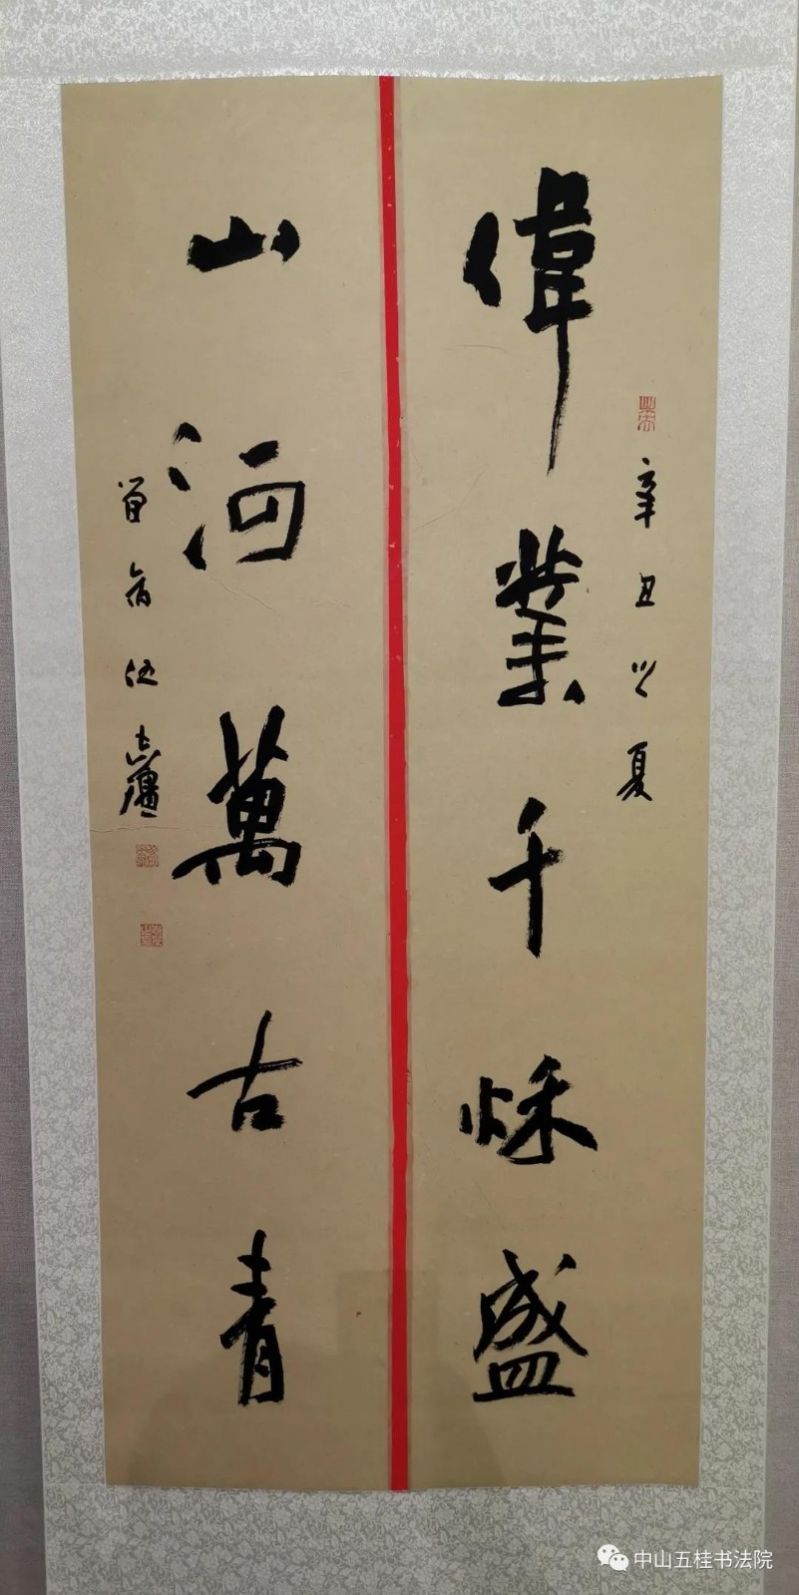 辛丑之夏
偉業千秌盛
山河萬古青
伍
中山五桂书法院